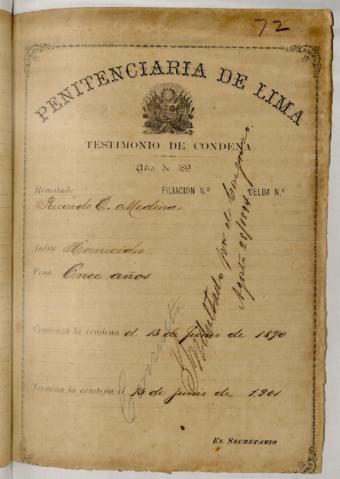 72
PENITENCIARIA DE LIMA
TESTIMONIO DE CONDENA
Año de 189
Rematado FILIACION N.º CELDA N.º
Ricardo C. Medina
Delito Homicidio
Pena Once años
Comienza la condena el 13 de Junio de 1890
Termina la condena el 13 de Junio de 1901
por el Congreso
Agosto 28/1894
EL SECRETARIO